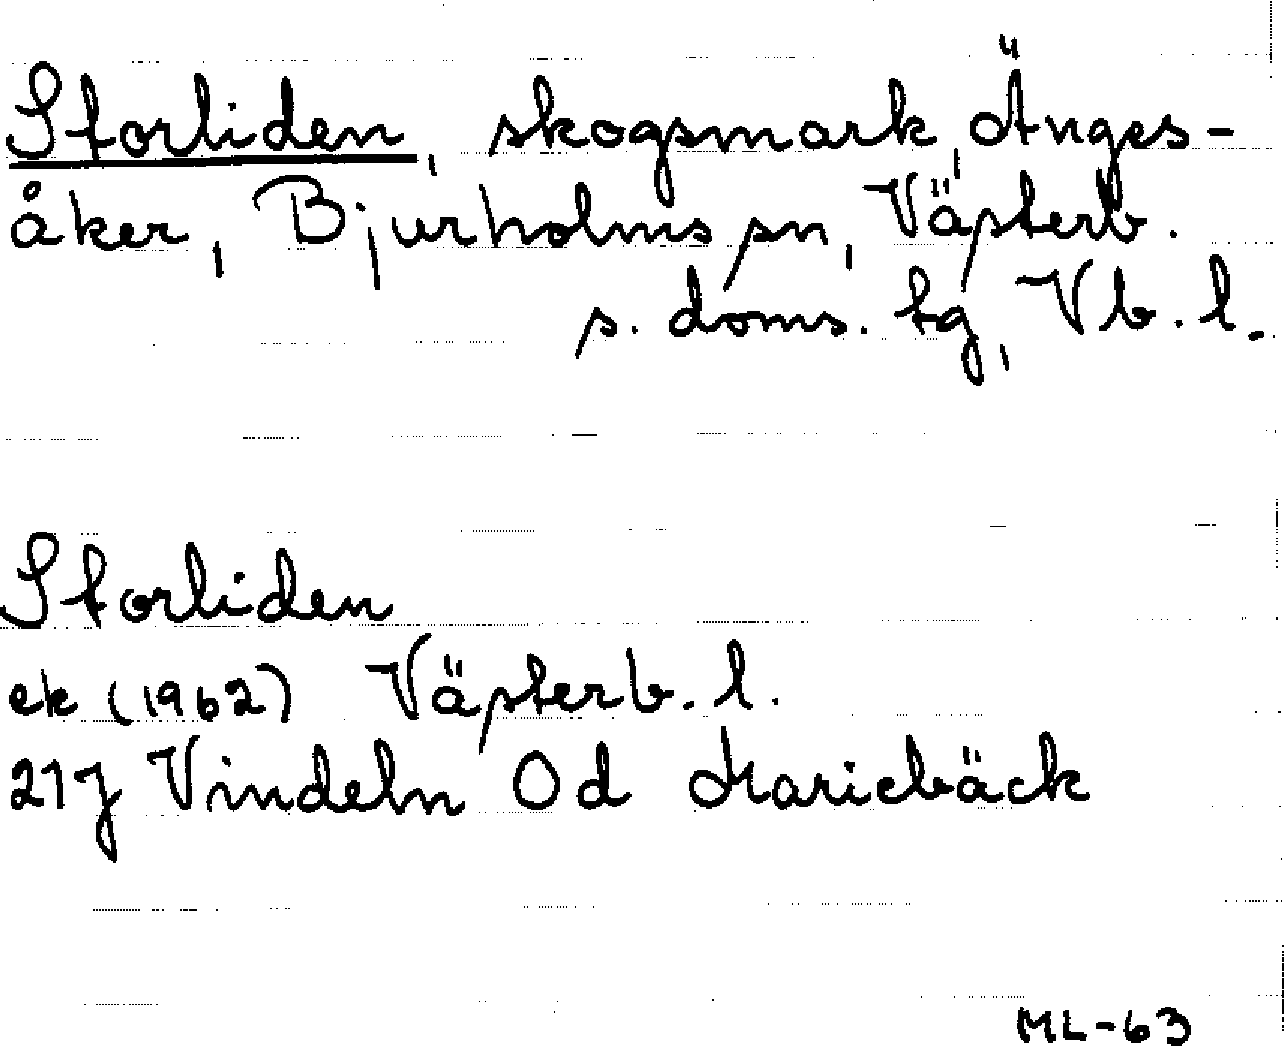 Storliden, skogsmark, Änges-
åker, Bjurholms sn, Västerb.
s. doms. tg, Vb. l.
Storliden
ek (1962) Västerb. l.
21J Vindeln 0d Mariebäck
ML-63